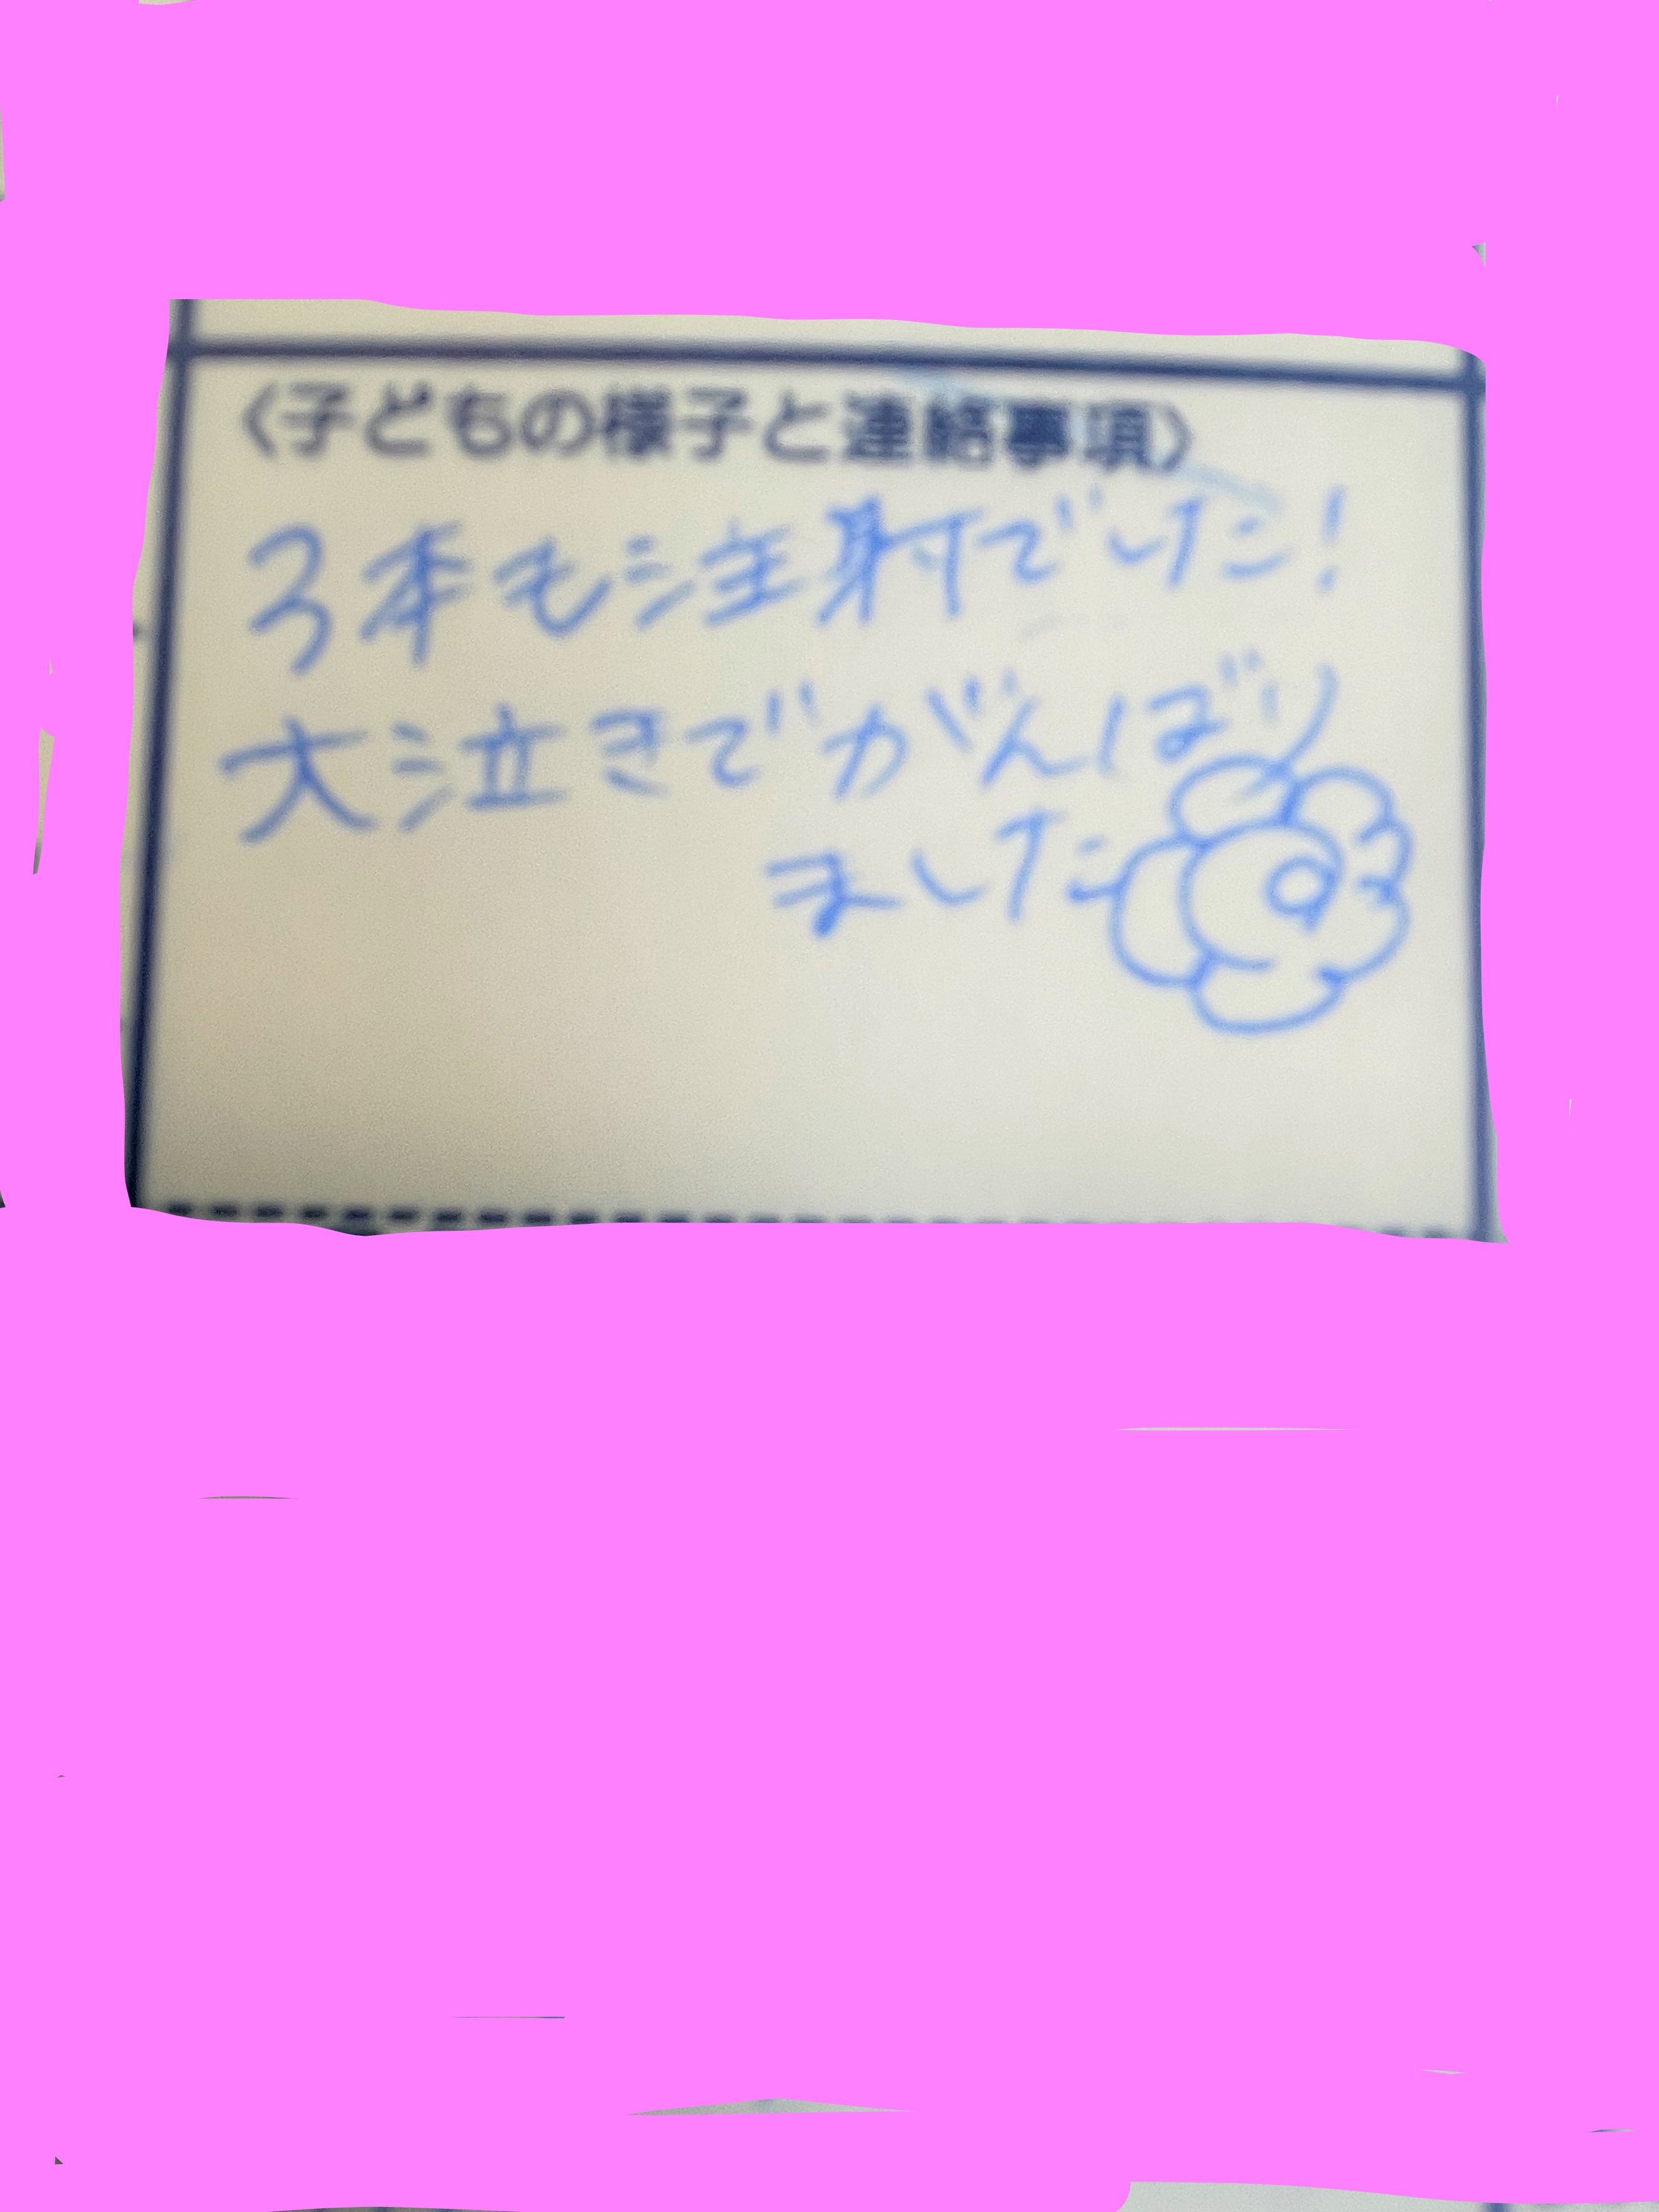 〈子どもの様子と連絡事項〉
3本も注射でした!
大泣きでがんばり
ました